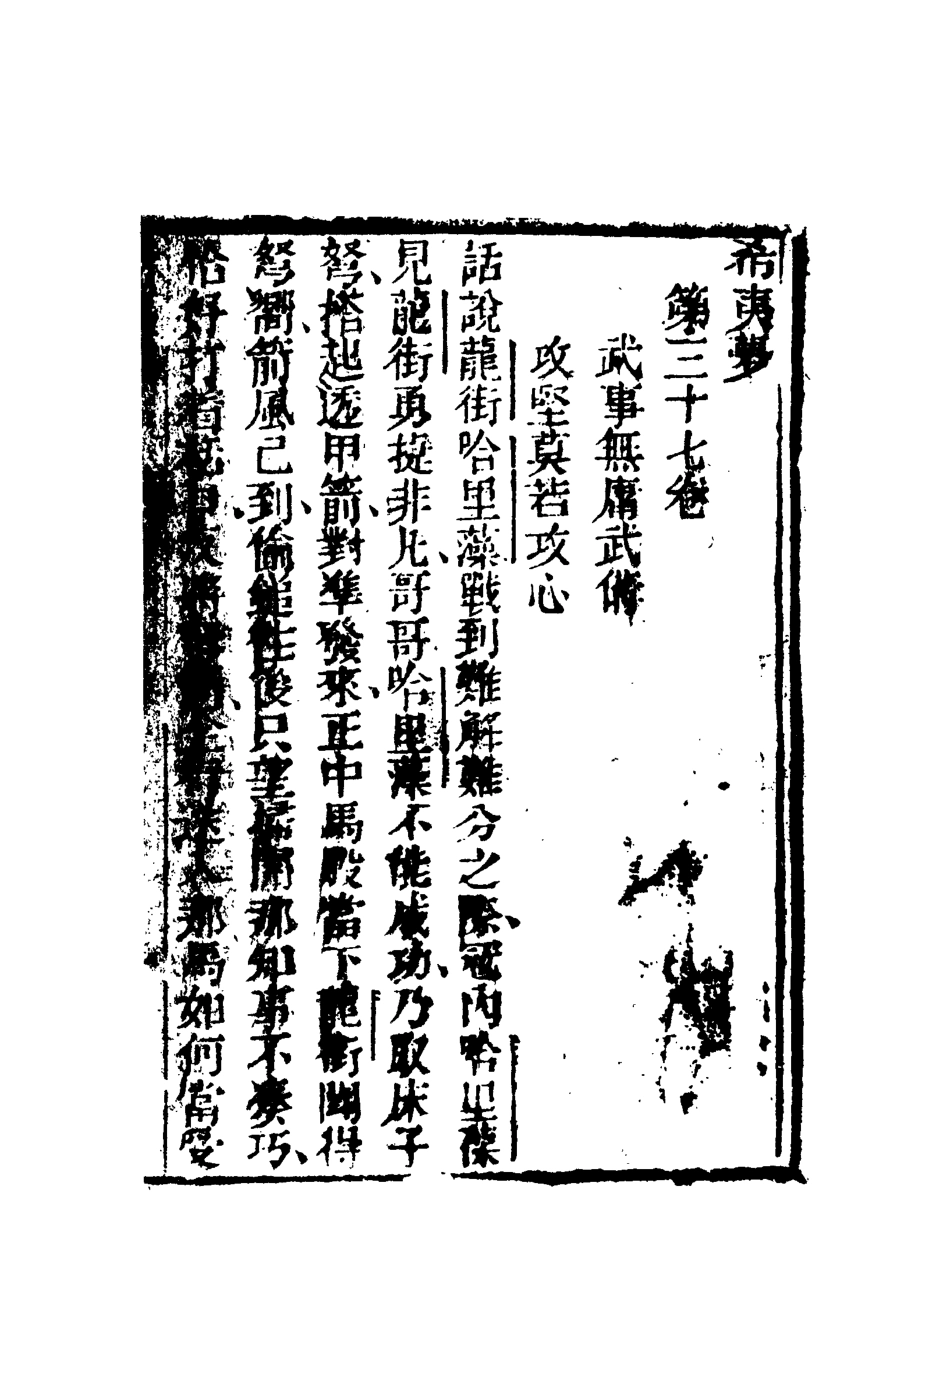 希夷夢
第三十七卷
武事無庸武備
攻堅莫若攻心
話說龍街哈里藻戰到難解難分之際、冦內哈里藻
見龍街勇捷非凡、哥哥哈里藻不能成功、乃取床子
弩、搭起透甲箭、對準發來、正中馬股當下龍街聞得
弩響、箭風已到、偷鎚往後只望撥開那知事不湊巧、
恰好打着馬如何當受